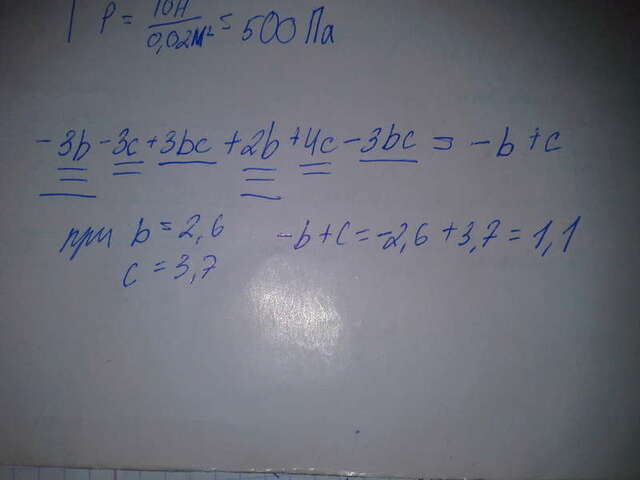 P = 10H / 0,02м² = 500 Па
-3b-3c+3bc+2b+4c-3bc = -b+c
при b = 2,6 -b+c = -2,6+3,7 = 1,1
c = 3,7